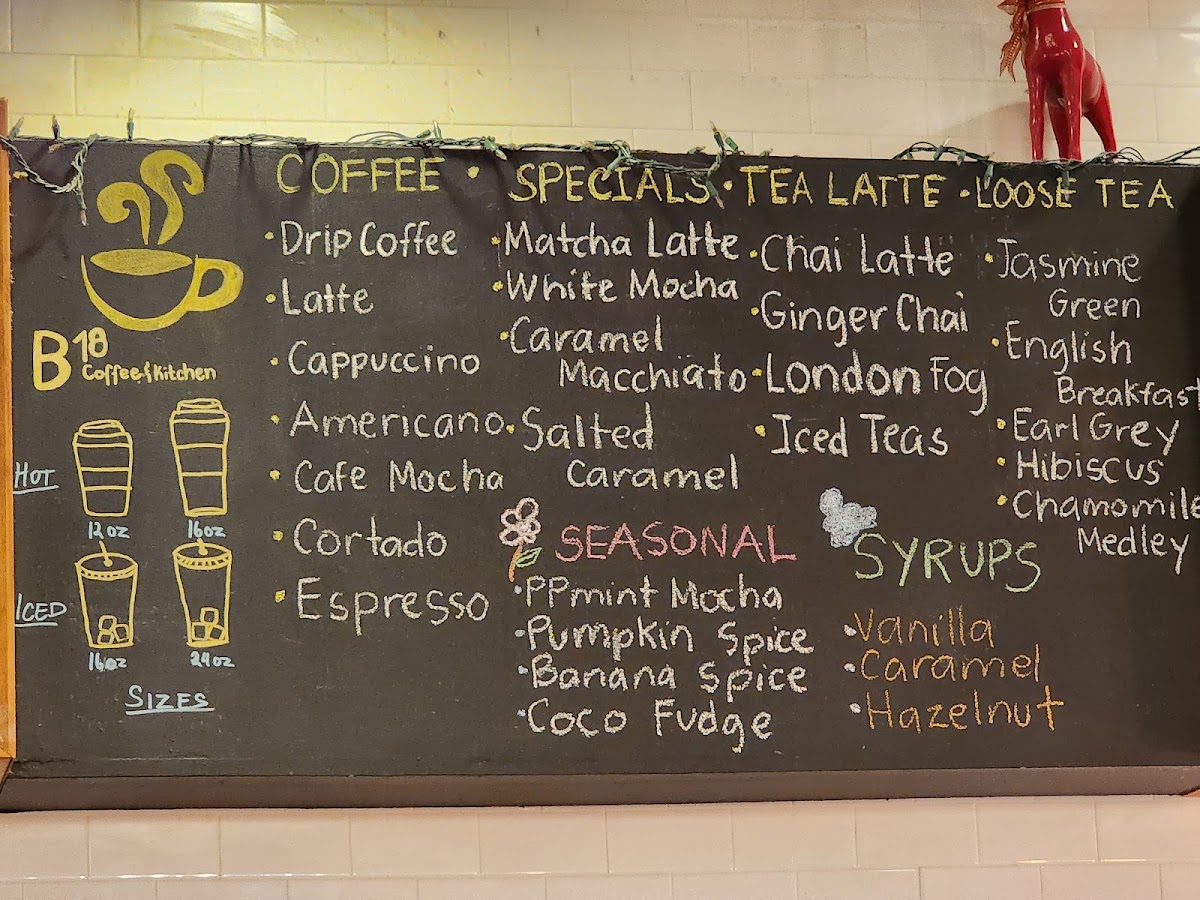 COFFEE • SPECIALS • TEA LATTE • LOOSE TEA
B18
Coffee & Kitchen
HOT
12 oz
16 oz
ICED
16 oz
24 oz
SIZES
• Drip Coffee
• Latte
• Cappuccino
• Americano
• Cafe Mocha
• Cortado
• Espresso
• Matcha Latte
• White Mocha
• Caramel
Macchiato
• Salted
Caramel
SEASONAL
• PPmint Mocha
• Pumpkin Spice
• Banana Spice
• Coco Fudge
• Chai Latte
• Ginger Chai
• London Fog
• Iced Teas
SYRUPS
• Vanilla
• Caramel
• Hazelnut
• Jasmine
Green
• English
Breakfast
• Earl Grey
• Hibiscus
• Chamomile
Medley